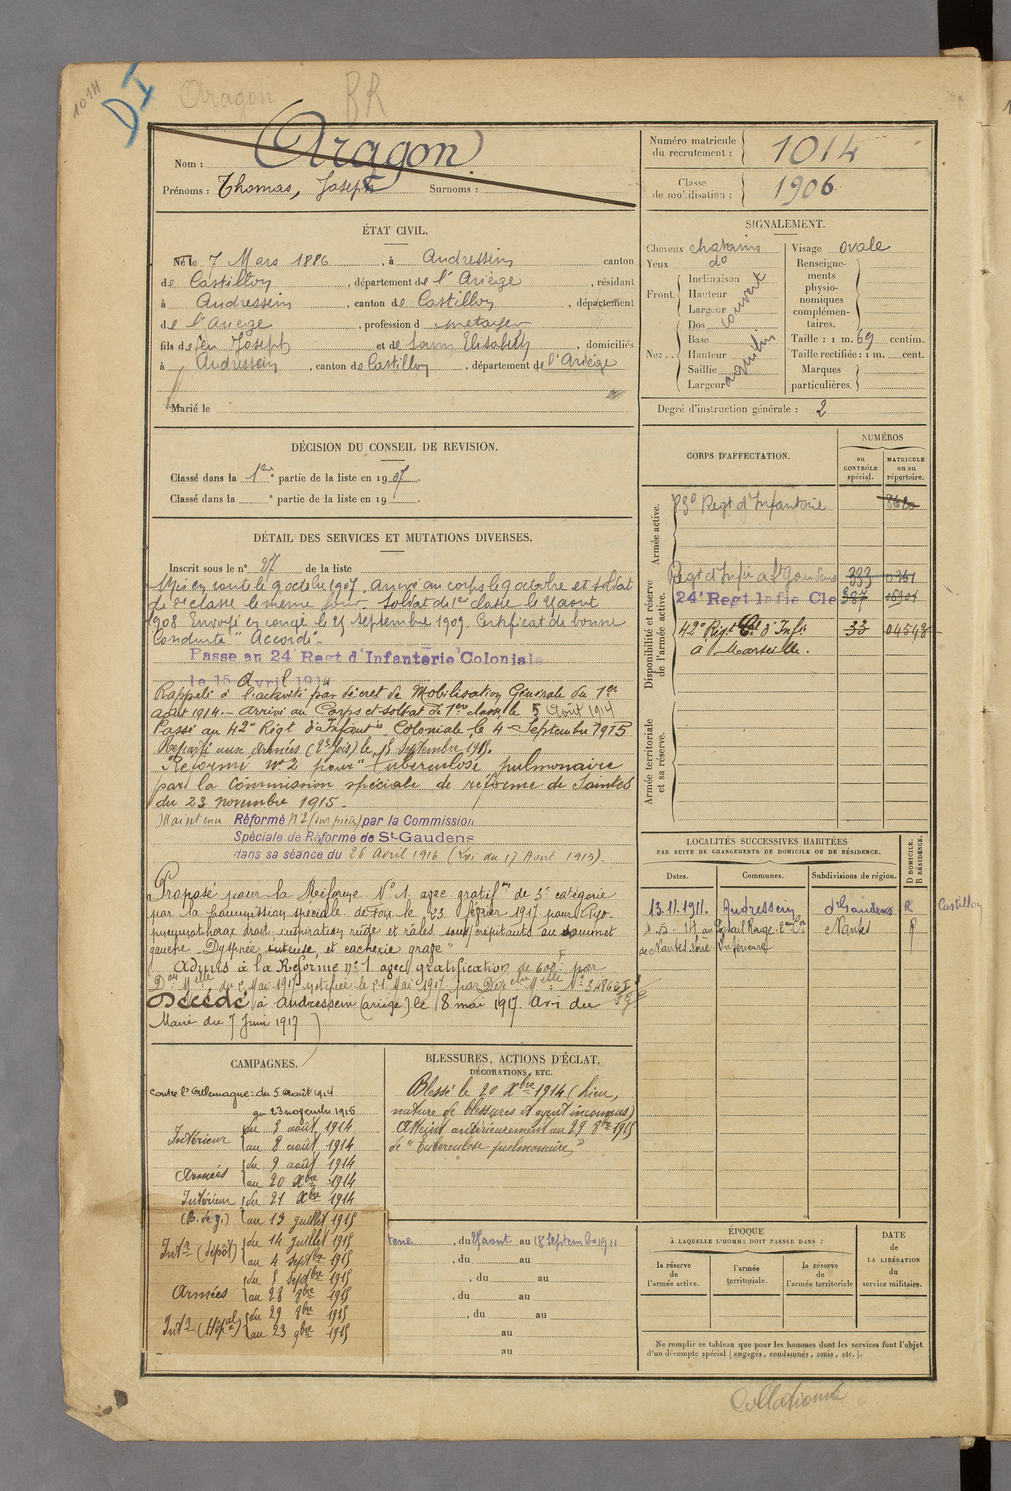 1014
DI
Aragon
BR
Nom : Aragon
Prénoms : Thomas, Joseph Surnoms :
Numéro matricule du recrutement : 1014
Classe de mobilisation : 1906
ÉTAT CIVIL.
Né le 7 Mars 1886, à Andressein canton
de Castillon, département de l'Ariège, résidant
à Andressein, canton de Castillon, département
de l'Ariège, profession d métayer
fils de feu Joseph et de Elisabeth, domiciliés
à Andressein, canton de Castillon, département de l'Ariège
Marié le
SIGNALEMENT.
Cheveux chatains
Yeux do
Front. Inclinaison
Hauteur
Largeur
couvert
Nez... Dos
Base
Hauteur
Saillie
Largeur
aquilin
Visage ovale
Renseignements physionomiques complémentaires.
Taille : 1 m. 69 centim.
Taille rectifiée : 1 m. cent.
Marques particulières.
Degré d'instruction générale : 2
DÉCISION DU CONSEIL DE REVISION.
Classé dans la 1ère partie de la liste en 1907.
Classé dans la e partie de la liste en 19 .
DÉTAIL DES SERVICES ET MUTATIONS DIVERSES.
Inscrit sous le no 27 de la liste
Mis en route le 9 octobre 1907. Arrivé au corps le 9 octobre et soldat
de 2e classe le même jour. Soldat de 1re classe le août
1908. Envoyé en congé le 25 septembre 1909. Certificat de bonne
conduite "Accordé"
Passe au 24 Regt d'Infanterie Coloniale
le 15 Avril 1914
Rappelé à l'activité par décret de Mobilisation Générale du 1er
août 1914. Arrivé au Corps et soldat de 1ere classe le 5 Août 1914
Passé au 42e Régt d'Infanie Coloniale le 4 Septembre 1915
Reparti aux armées (2e fois) le 5 septembre 1915.
Réformé no 2 pour "tuberculose pulmonaire
par la Commission spéciale de réforme de Saintes
du 23 novembre 1915.
Maintenu Réformé no 2 (sur pièces) par la Commission
Spéciale de Réforme de St-Gaudens
dans sa séance du 26 Avril 1916 (Loi du 17 Aout 1915).
Proposé pour la Réforme No 1 avec gratifon de 5e catégorie
par la Commission spéciale de Foix le 23 février 1917 pour Pyo-
pneumothorax droit, respiration rude et râles sous crépitants au sommet
gauche. Dyspnée intense, et cachexie grave"
Admis à la Réforme no 1 avec gratification de 600 F par
Mai 1917 notifiée le 21 Mai 1917
Décédé à Andressein (Ariège) le 18 mai 1917. Avis du
Maire du 7 Juin 1917
CORPS D'AFFECTATION.
NUMÉROS
au CONTRÔLE spécial.
MATRICULE ou au répertoire.
Armée active.
83e Regt d'Infanterie
Disponibilité et réserve de l'armée active.
Regt d'Infie à St Gaudens 333
24e Regt Infie Cle 387
42e Régt Cal d'Infie 33 04548
à Marseille.
Armée territoriale et sa réserve.
LOCALITÉS SUCCESSIVES HABITÉES
PAR SUITE DE CHANGEMENTS DE DOMICILE OU DE RÉSIDENCE.
Dates. Communes. Subdivisions de région. D DOMICILE. R RÉSIDENCE.
13.11.1911. Andressein St Gaudens R Castillon
Nantes R
CAMPAGNES.
contre l'Allemagne : du 5 août 1914
au 23 novembre 1915
Intérieur du 3 août 1914
au 8 août 1914
Armées du 9 août 1914
au 20 Xbre 1914
Intérieur du 21 Xbre 1914
(B. de g.) au 13 juillet 1915
Intr (dépôt) du 14 juillet 1915
au 4 septbre 1915
Armées du 5 septbre 1915
au 28 8bre 1915
Intr (Hôpal) du 29 8bre 1915
au 23 9bre 1915
BLESSURES, ACTIONS D'ÉCLAT,
DÉCORATIONS, ETC.
Blessé le 20 Xbre 1914 (lieu,
nature de blessures et agent inconnus)
Atteint antérieurement au 29 8bre 1915
de "Tuberculose pulmonaire"
terie, du août au 18 Septembre 1911
, du au
, du au
, du au
, du au
au
au
ÉPOQUE
À LAQUELLE L'HOMME DOIT PASSER DANS :
la réserve de l'armée active.
l'armée territoriale.
la réserve de l'armée territoriale
DATE de LA LIBÉRATION du service militaire.
Ne remplir ce tableau que pour les hommes dont les services font l'objet
d'un décompte spécial (engagés, condamnés, omis, etc.).
Collationné